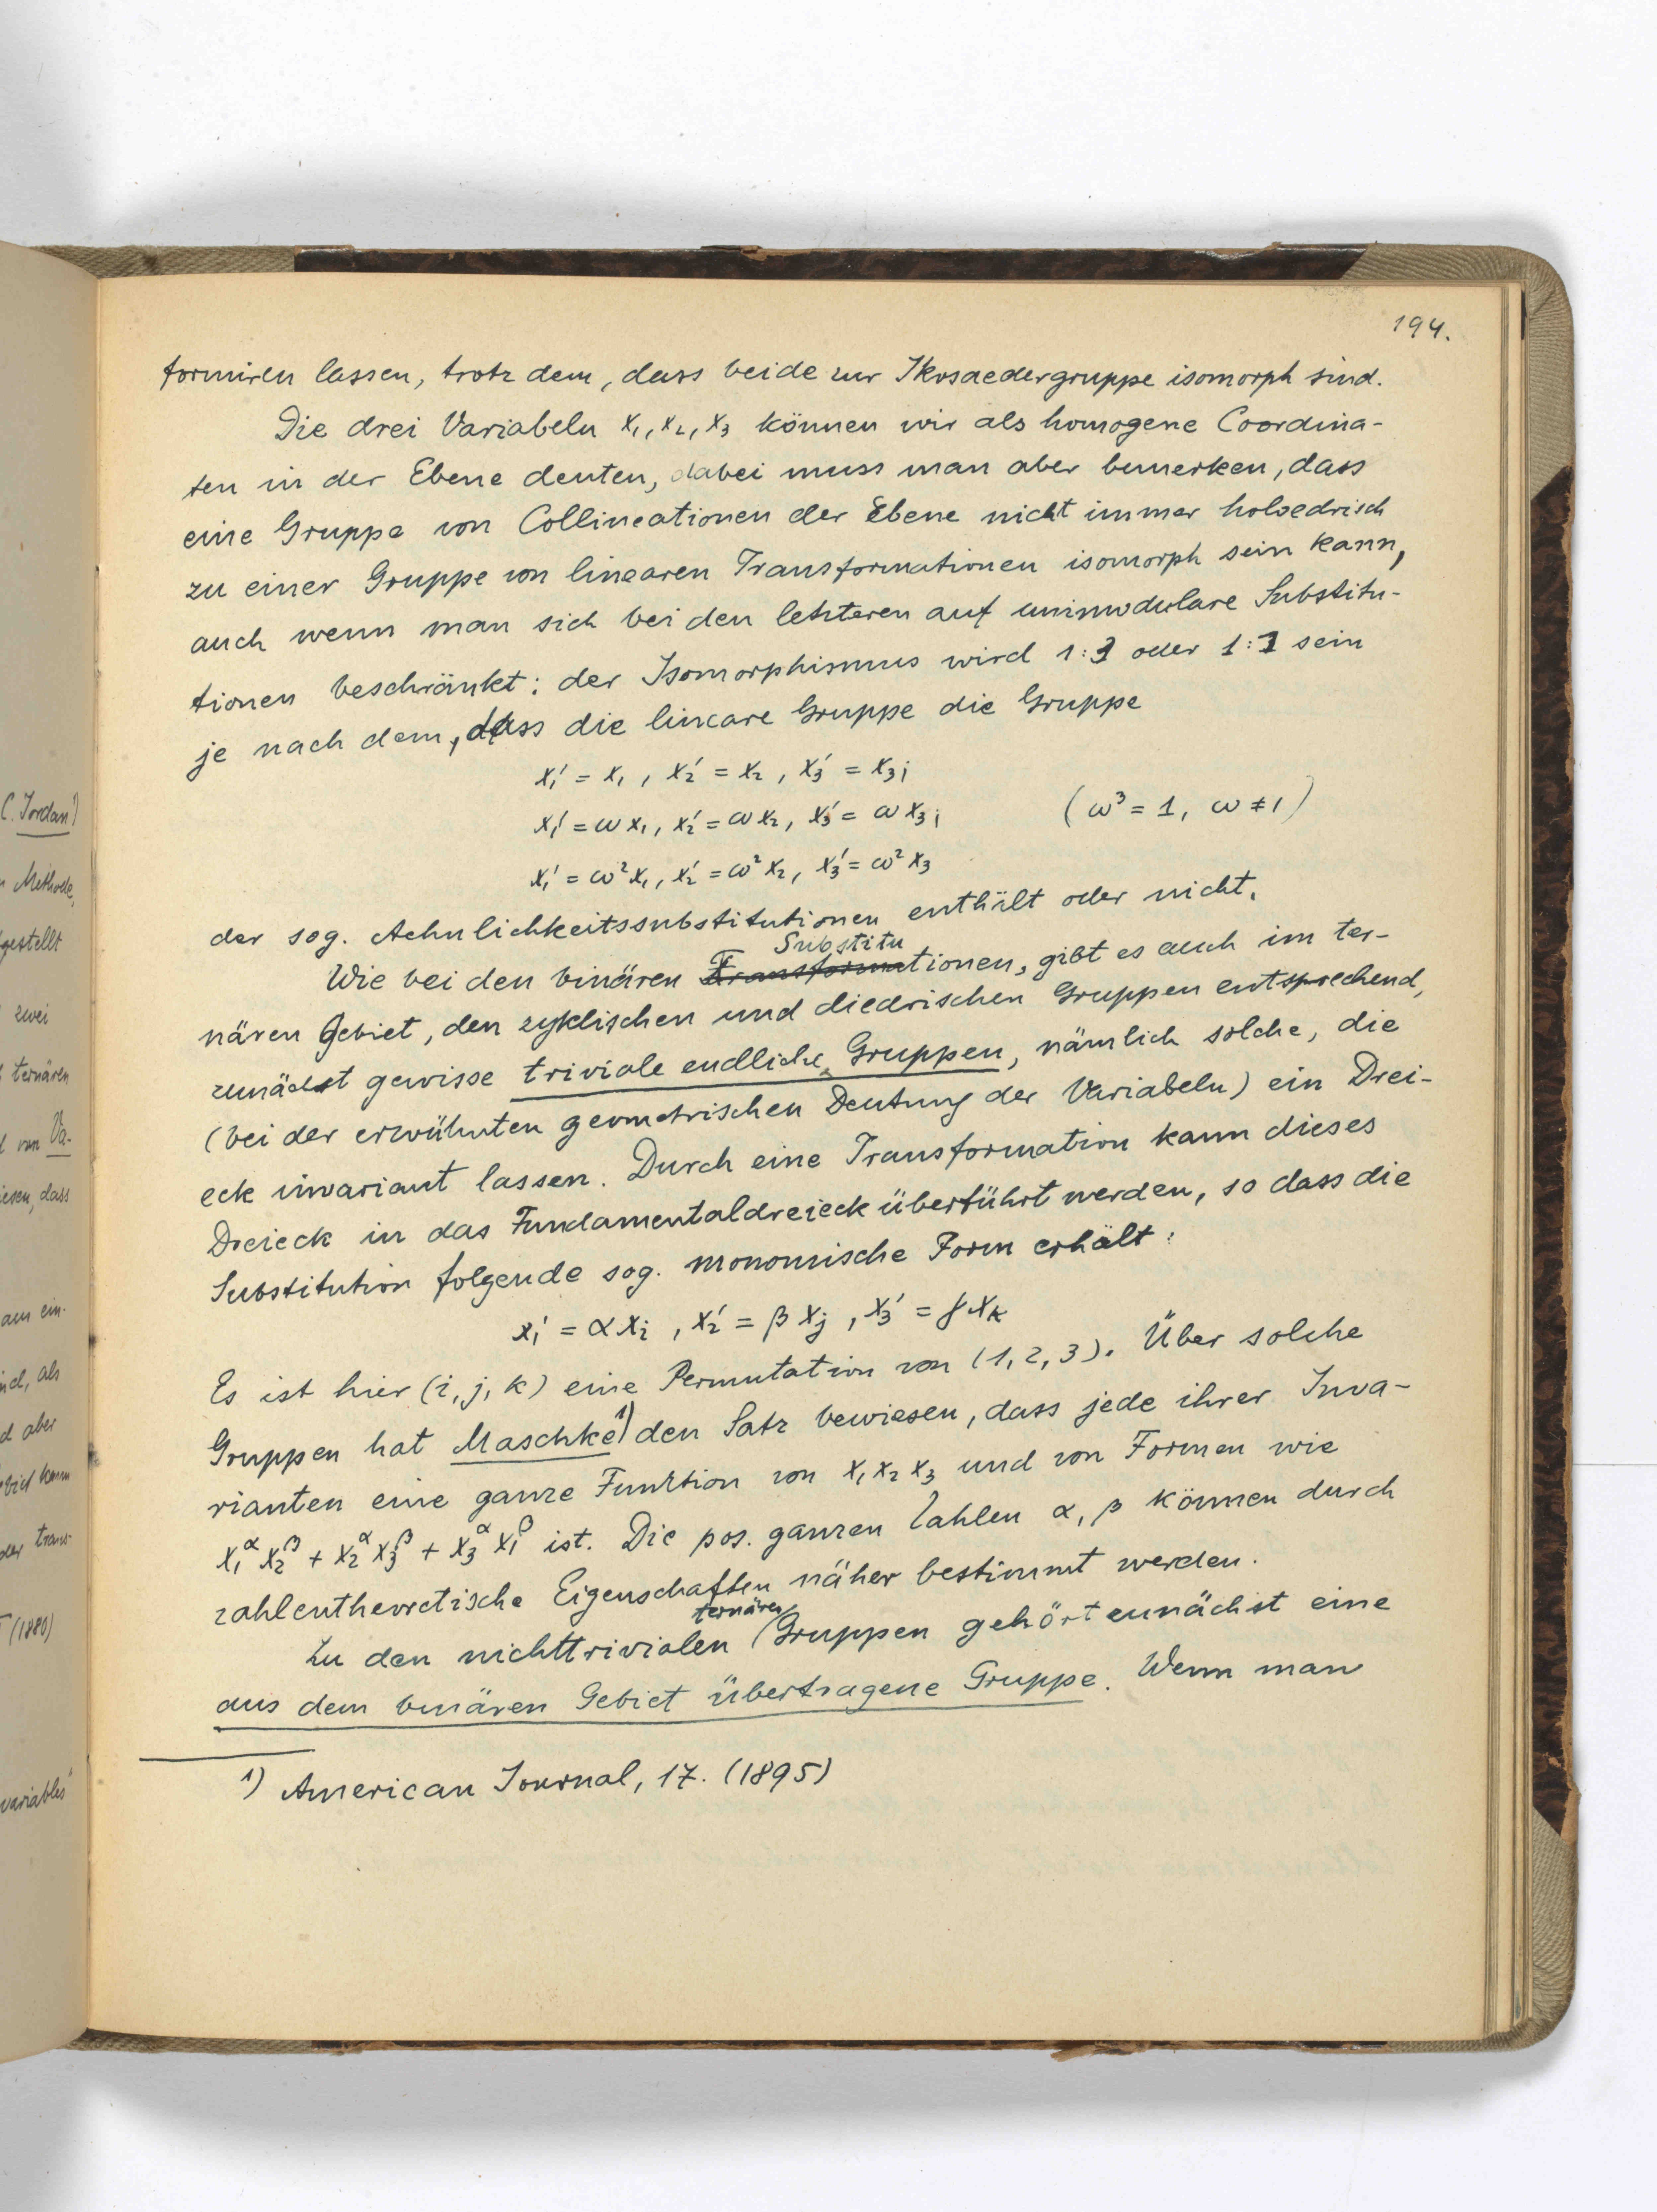 194.
formiren lassen, trotz dem, dass beide zur Ikosaedergruppe isomorph sind.
Die drei Variabeln x₁, x₂, x₃ können wir als homogene Coordina-
ten in der Ebene deuten, dabei muss man aber bemerken, dass
eine Gruppe von Collineationen der Ebene nicht immer holoedrisch
zu einer Gruppe von linearen Transformationen isomorph sein kann,
auch wenn man sich bei den letzteren auf unimodulare Substitu-
tionen beschränkt; der Isomorphismus wird 1:3 oder 1:1 sein
je nach dem, dass die lineare Gruppe die Gruppe
x₁' = x₁, x₂' = x₂, x₃' = x₃;
x₁' = ωx₁, x₂' = ωx₂, x₃' = ωx₃; (ω³ = 1, ω ≠ 1)
x₁' = ω²x₁, x₂' = ω²x₂, x₃' = ω²x₃
der sog. Aehnlichkeitssubstitutionen enthält oder nicht.
Substitu
Wie bei den binären Transformationen, gibt es auch im ter-
nären Gebiet, den zyklischen und diedrischen Gruppen entsprechend,
zunächst gewisse triviale endliche Gruppen, nämlich solche, die
(bei der erwühnten geometrischen Deutung der Variabeln) ein Drei-
eck invariant lassen. Durch eine Transformation kann dieses
Dreieck in das Fundamentaldreieck überführt werden, so dass die
Substitution folgende sog. monomische Form erhält:
x₁' = αxᵢ, x₂' = βxⱼ, x₃' = γxₖ
Es ist hier (i, j, k) eine Permutation von (1, 2, 3). Über solche
Gruppen hat Maschke¹⁾ den Satz bewiesen, dass jede ihrer Inva-
rianten eine ganze Funktion von x₁x₂x₃ und von Formen wie
x₁^α x₂^β + x₂^α x₃^β + x₃^α x₁^β ist. Die pos. ganzen Zahlen α, β können durch
zahlentheoretische Eigenschaften näher bestimmt werden.
ternären
Zu den nichttrivialen Gruppen gehört zunächst eine
aus dem binären Gebiet übertragene Gruppe. Wenn man
1) American Journal, 17. (1895)
C. Jordan¹⁾
Methode,
gestellt
zwei
ternären
von Va-
iesen, dass
am ein-
ind, als
d aber
ebiet kann
der trans-
(1880)
variables"